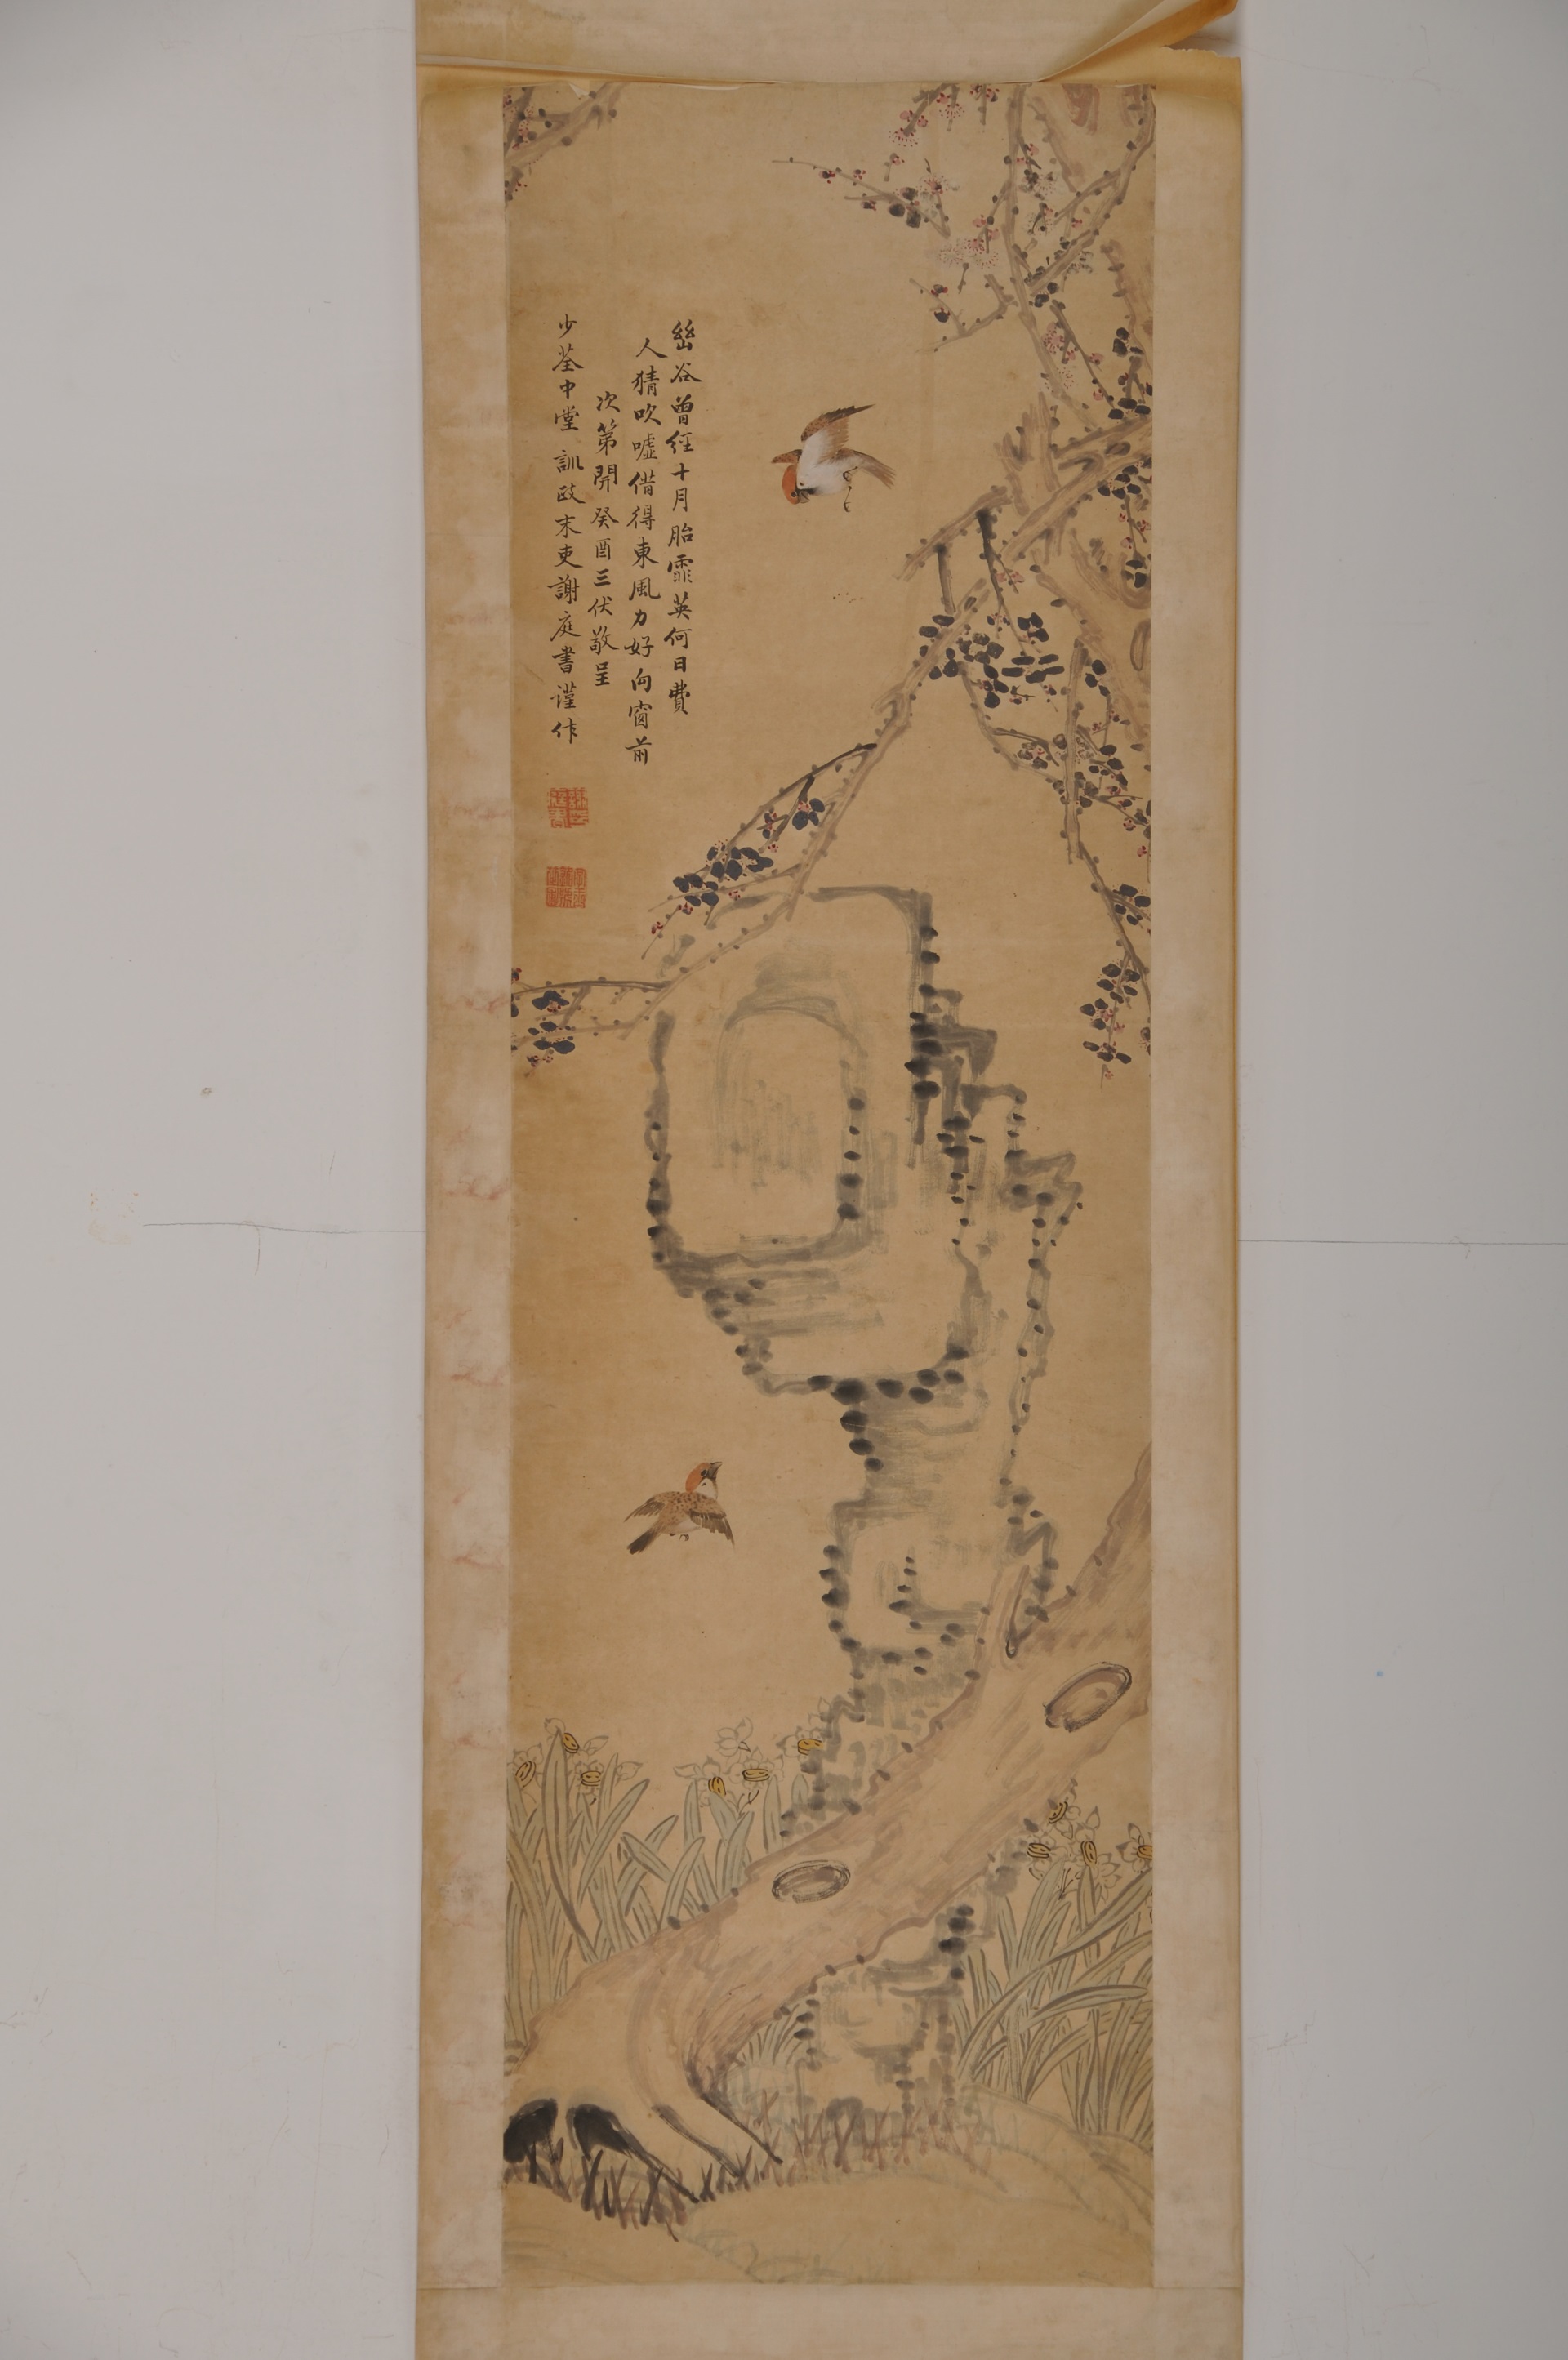 豳谷曾經十月胎霏英何日費
人猜吹噓借得東風力好向窗前
次第開癸酉三伏敬呈
少荃中堂訓政末吏謝庭書謹作